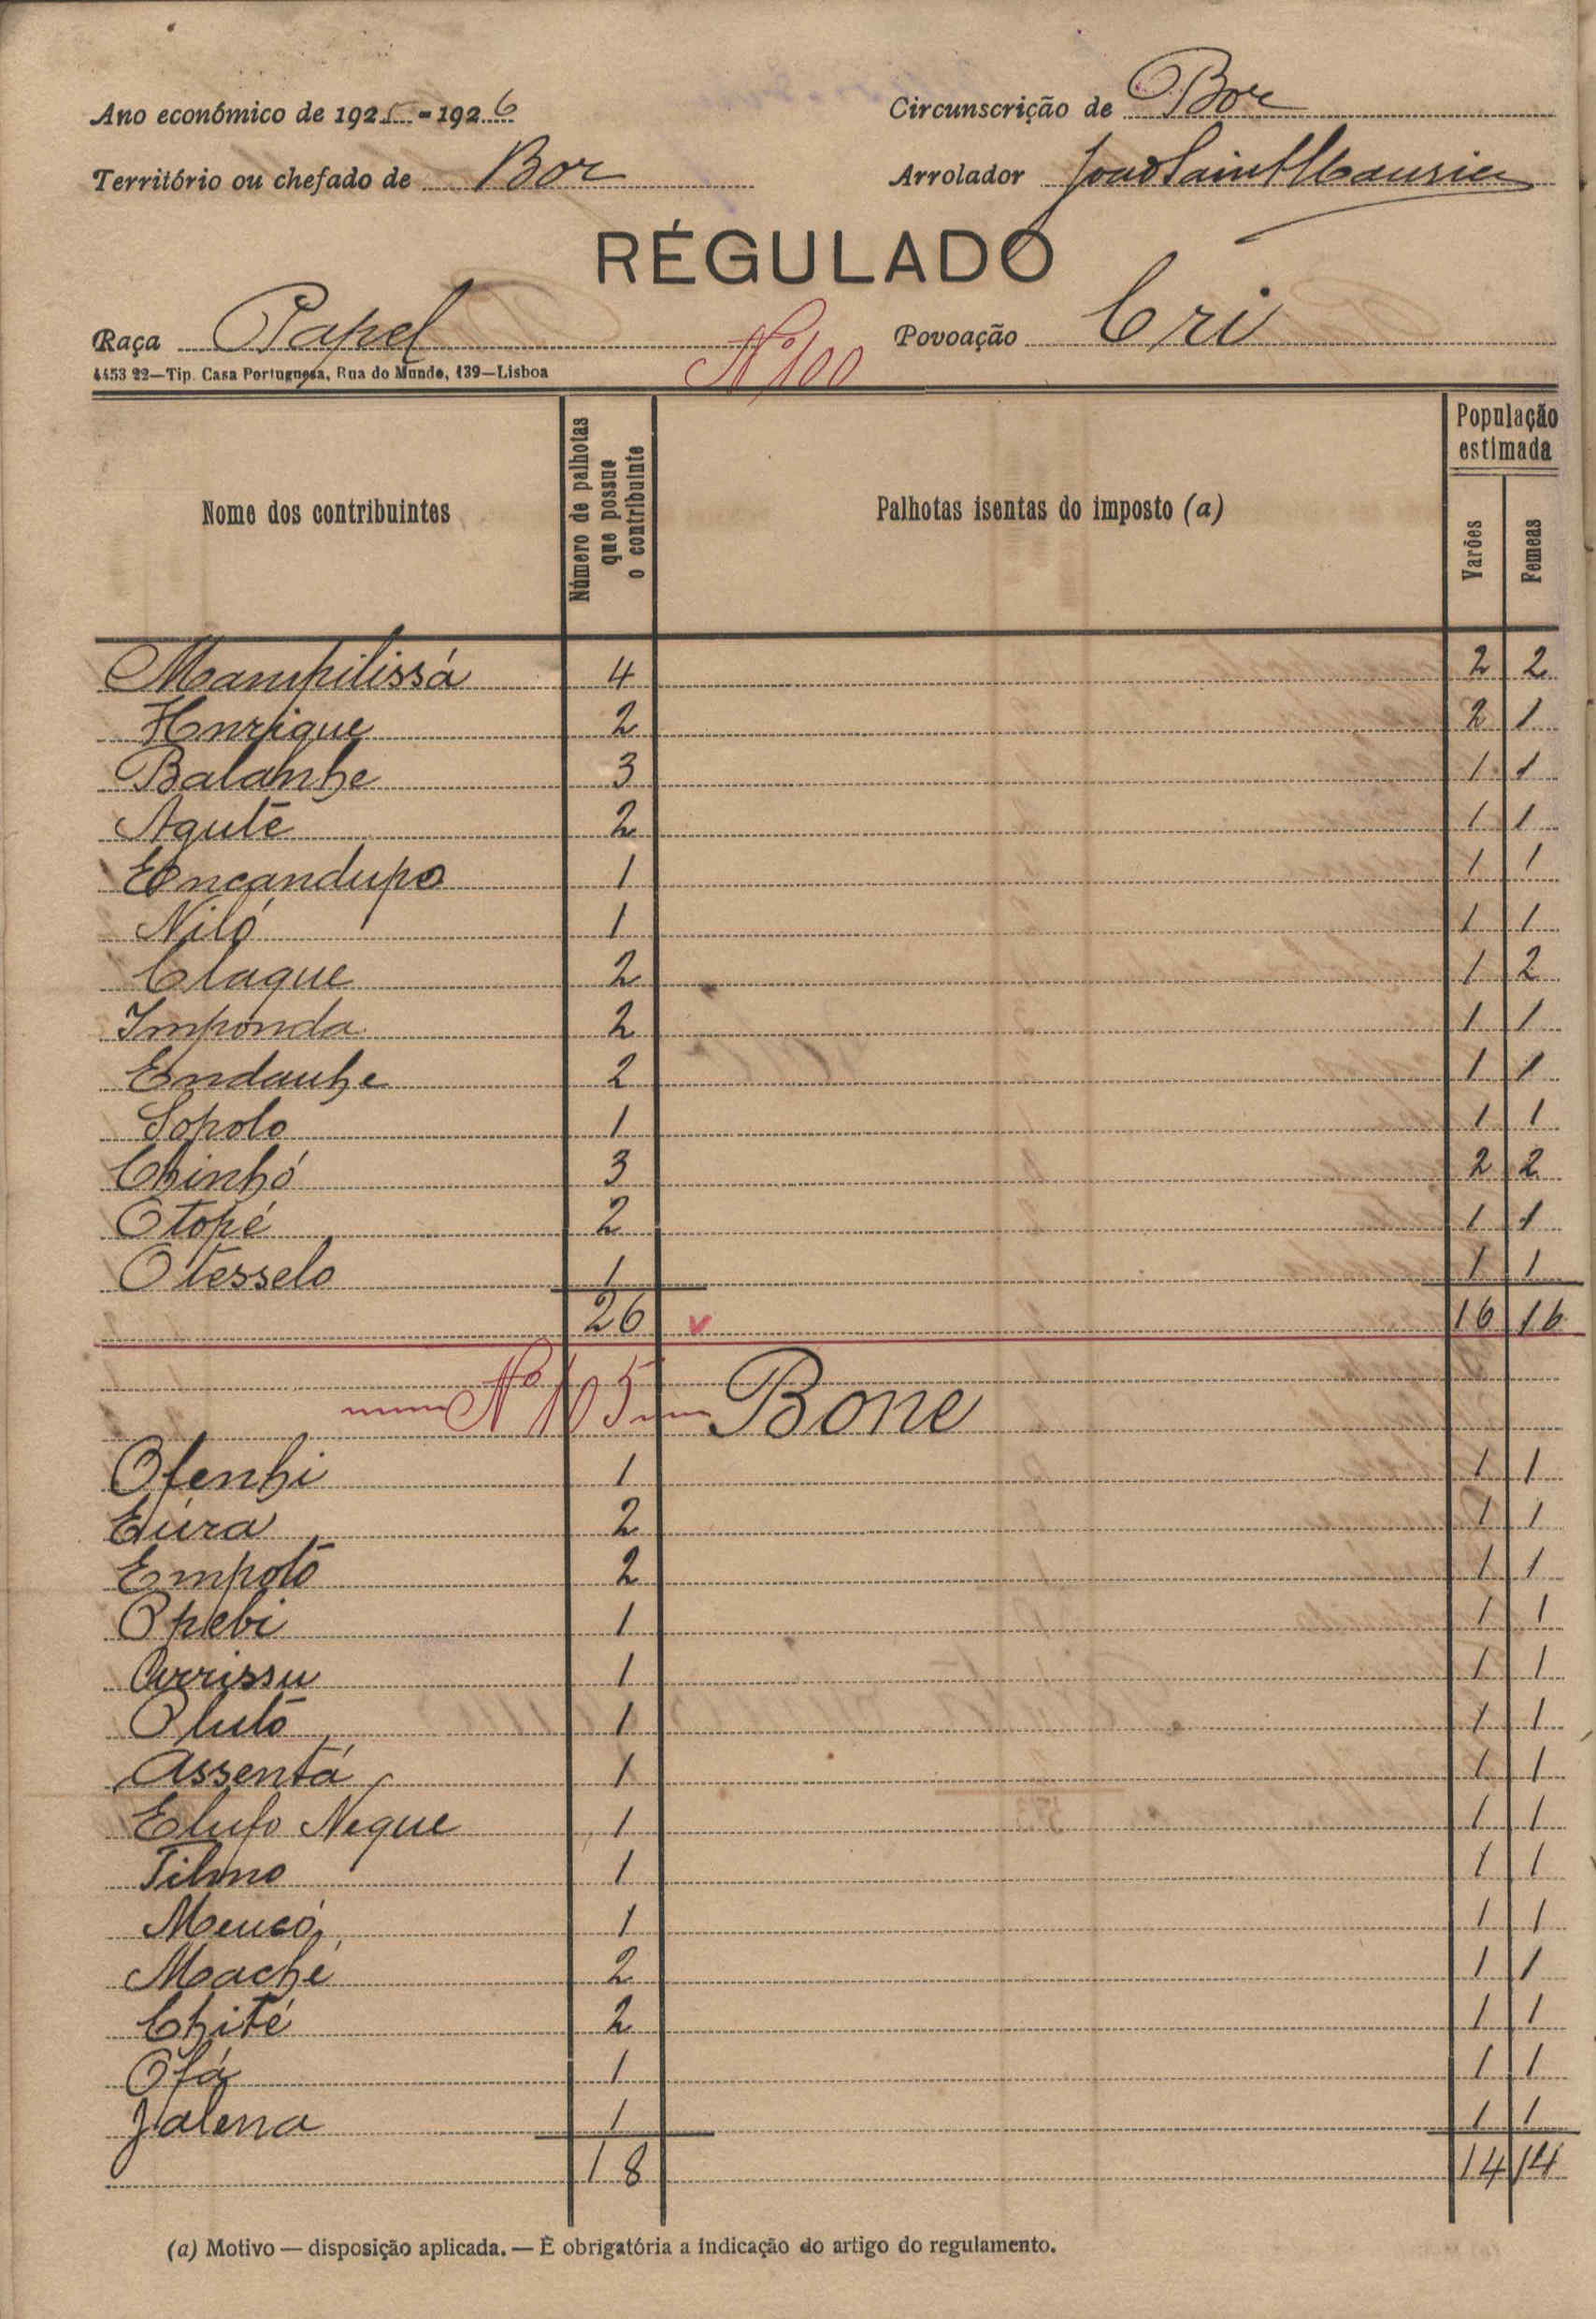 Ano económico de 1925-1926 Circunscrição de Bor
Território ou chefado de Bor Arrolador João Saint Maurice
RÉGULADO
Raça Papel Nº 100 Povoação Cri
4453 22—Tip. Casa Portuguesa, Rua do Mundo, 139—Lisboa
Nome dos contribuintes Número de palhotas que possue o contribuinte Palhotas isentas do imposto (a) População estimada Varões Femeas
Mampilissá 4 2 2
Henrique 2 2 1
Balanhe 3 1 1
Aguté 2 1 1
Encandupo 1 1 1
Niló 1 1 1
Claque 2 1 2
Imponda 2 1 1
Endauhe 2 1 1
Sopolo 1 1 1
Chinhó 3 2 2
Otopé 2 1 1
Otesselo 1 1 1
26 v 16 16
Nº 105 Bone
Ofenhi 1 1 1
Eúra 2 1 1
Empotó 2 1 1
Opebi 1 1 1
Orrissu 1 1 1
Olutó 1 1 1
Assentá 1 1 1
Elufo Neque 1 1 1
1 1 1
1 1 1
Maché 2 1 1
Chité 2 1 1
Ofá 1 1 1
Jalena 1 1 1
18 14 14
(a) Motivo — disposição aplicada. — É obrigatória a indicação do artigo do regulamento.